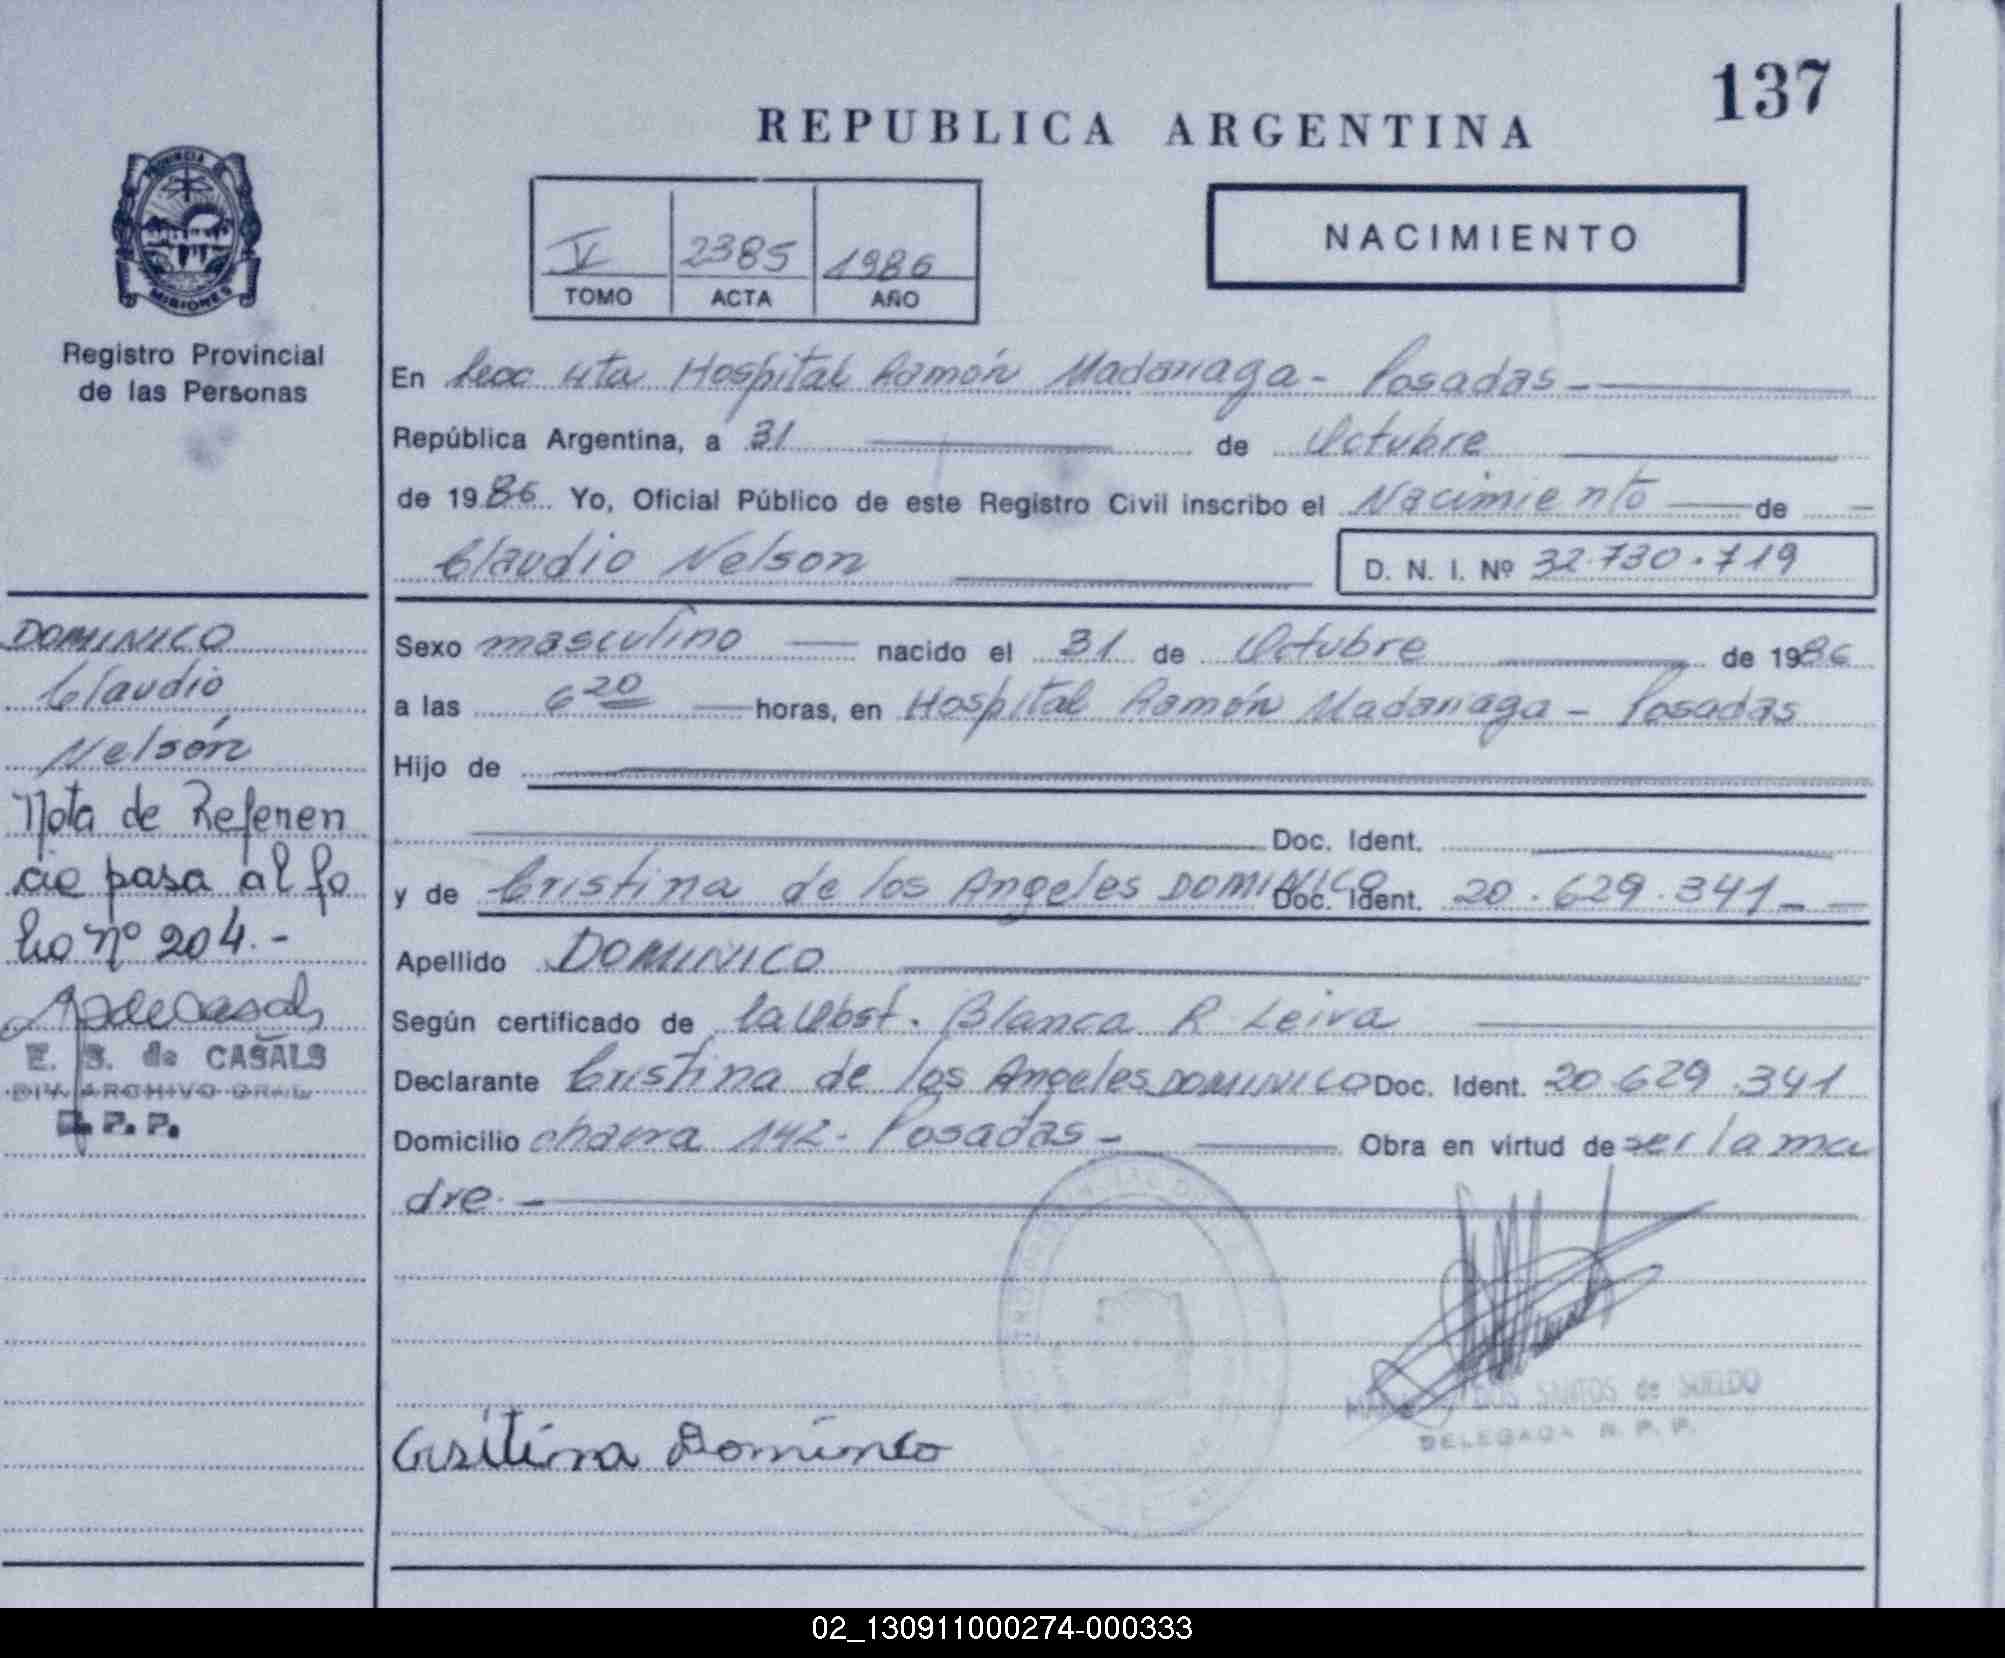 137
REPUBLICA ARGENTINA
PROVINCIA
MISIONES
Registro Provincial
de las Personas
V 2385 1986
TOMO ACTA AÑO
NACIMIENTO
En Secc 4ta Hospital Ramón Madariaga - Posadas -
República Argentina, a 31 de Octubre
de 1986 Yo, Oficial Público de este Registro Civil inscribo el Nacimiento de
Claudio Nelson D. N. I. Nº 32.730.719
Sexo masculino nacido el 31 de Octubre de 1986
a las 6 20 horas, en Hospital Ramón Madariaga - Posadas
Hijo de
Doc. Ident.
y de Cristina de los Angeles DOMINICO Doc. Ident. 20.629.341 -
Apellido DOMINICO
Según certificado de la Obst. Blanca R Leiva
Declarante Cristina de los Angeles DOMINICO Doc. Ident. 20.629.341
Domicilio chacra 142 - Posadas - Obra en virtud de ser la ma
dre. -
DOS SANTOS de SUELDO
DELEGADA R. P. P.
Crsitina Dominico
DOMINICO
Claudio
Nelsón
Nota de Referen
cia pasa al fo
lio nº 204.-
E. S. de CASALS
DIV. ARCHIVO GRAL
R. P. P.
02_130911000274-000333